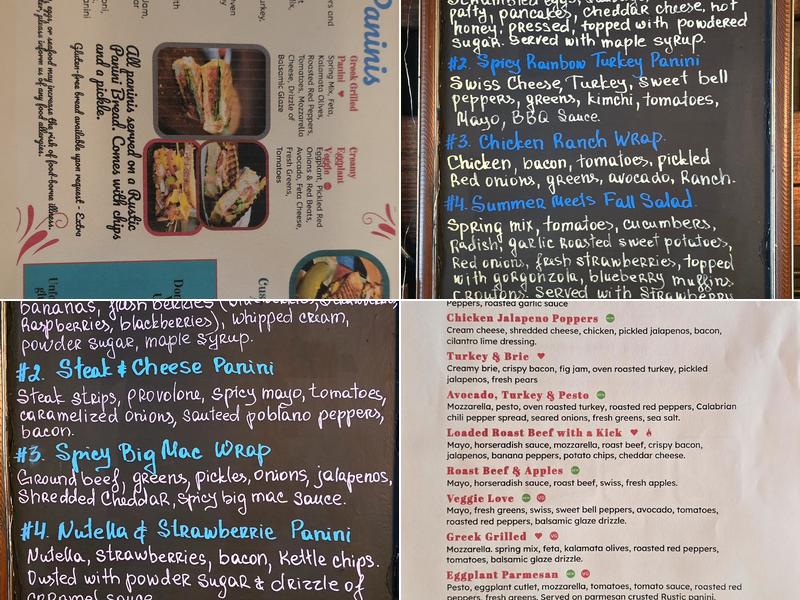 Paninis
Greek Grilled
Panini
Spring Mix, Feta,
Kalamata Olives,
Roasted Red Peppers,
Tomatoes, Mozzarella
Cheese, Drizzle of
Balsamic Glaze
Creamy
Eggplant
Veggie
Eggplant, Pickled Red
Onions & Red Beats,
Avocado, Feta Cheese,
Fresh Greens,
Tomatoes
All paninis served on a Rustic
Panini Bread. Comes with chips
and a pickle.
Gluten-free bread available upon request - Extra
eggs, or seafood may increase the risk of food-borne illness.
please inform us of any food allergies.
Scrambled eggs,
patty, pancakes, cheddar cheese, hot
honey, pressed, topped with powdered
sugar. Served with maple syrup.
#2. Spicy Rainbow Turkey Panini
Swiss Cheese, Turkey, sweet bell
peppers, greens, kimchi, tomatoes,
Mayo, BBQ Sauce.
#3. Chicken Ranch Wrap.
Chicken, bacon, tomatoes, pickled
Red onions, greens, avocado, Ranch.
#4. Summer Meets Fall Salad.
Spring mix, tomatoes, cucumbers,
Radish, garlic Roasted sweet potatoes,
Red onions, fresh strawberries, topped
with gorgonzola, blueberry muffins
croutons. Served with Strawberry
bananas, fresh berries
Raspberries, blackberries), whipped cream,
powder sugar, maple syrup.
#2. Steak & Cheese Panini
Steak strips, provolone, spicy mayo, tomatoes,
caramelized onions, sauteed poblano peppers,
bacon.
#3. Spicy Big Mac Wrap
Ground beef, greens, pickles, onions, jalapenos,
Shredded Cheddar, spicy big mac sauce.
#4. Nutella & Strawberrie Panini
Nutella, strawberries, bacon, Kettle chips.
Dusted with powder sugar & drizzle of
caramel sauce
Peppers, roasted garlic sauce
Chicken Jalapeno Poppers
Cream cheese, shredded cheese, chicken, pickled jalapenos, bacon,
cilantro lime dressing.
Turkey & Brie
Creamy brie, crispy bacon, fig jam, oven roasted turkey, pickled
jalapenos, fresh pears
Avocado, Turkey & Pesto
Mozzarella, pesto, oven roasted turkey, roasted red peppers, Calabrian
chili pepper spread, seared onions, fresh greens, sea salt.
Loaded Roast Beef with a Kick
Mayo, horseradish sauce, mozzarella, roast beef, crispy bacon,
jalapenos, banana peppers, potato chips, cheddar cheese.
Roast Beef & Apples
Mayo, horseradish sauce, roast beef, swiss, fresh apples.
Veggie Love
Mayo, fresh greens, swiss, sweet bell peppers, avocado, tomatoes,
roasted red peppers, balsamic glaze drizzle.
Greek Grilled
Mozzarella. spring mix, feta, kalamata olives, roasted red peppers,
tomatoes, balsamic glaze drizzle.
Eggplant Parmesan
Pesto, eggplant cutlet, mozzarella, tomatoes, tomato sauce, roasted red
peppers, fresh greens. Served on parmesan crusted Rustic panini.